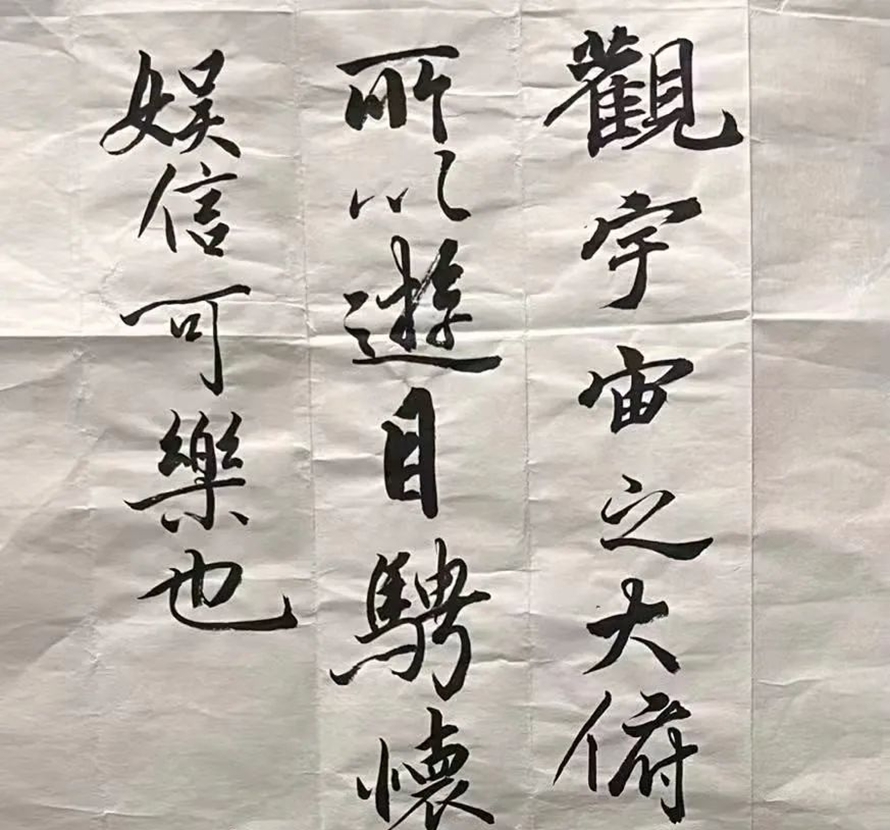 觀宇宙之大俯
所以遊目騁懷
娱信可樂也